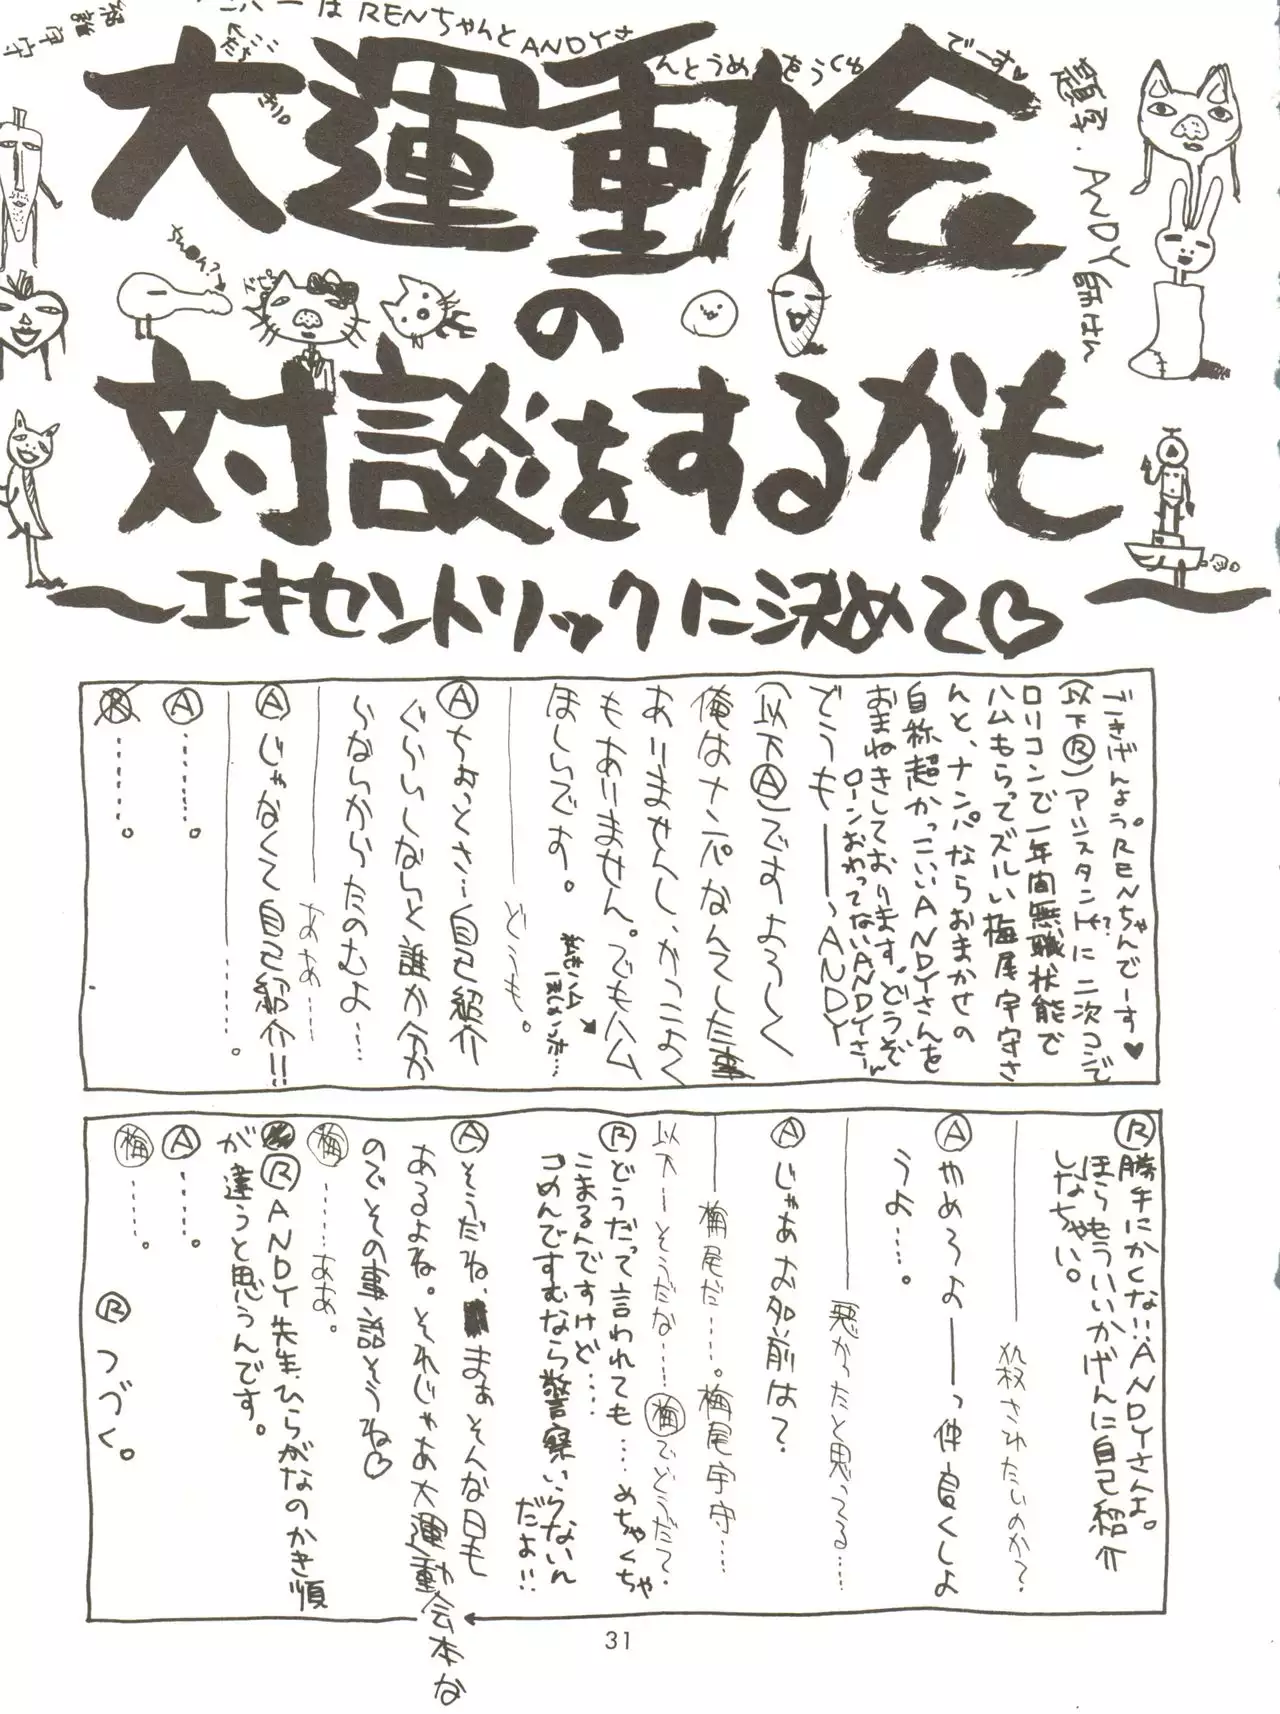 は RENちゃんと ANDYさ
んと うめ
でーす♡
大運動会
の
対談をするかも
～エキセントリックに決めて♡～
題字・ANDY師さん
ごきげんようRENちゃんでーす♥
(以下Ⓡ)アシスタントに二次コンで
ハムもらってズルい梅尾宇守さ
んと、ナンパならおまかせの
自称超かっこいいANDYさんを
おまねきしております。どうぞ
ローンおわってないANDYさん
どうも――っANDY
(以下Ⓐ)ですよろしく
俺はナンパなんてした事
ありませんし、かっこよく
もありません。でもハム
ほしいです。
――どうも。
Ⓐちょっとさ…自己紹介
ぐらいしないと誰か分か
らないからたのむよ……
――ああ……
Ⓐじゃなくて自己紹介!!
――……。
Ⓐ……。
Ⓡ……。
Ⓡ勝手にかくな!!ANDYさんよ。
ほらもういいかげんに自己紹介
しなちゃい。
――殺されたいのか？
Ⓐやめろよ――っ仲良くしよ
うよ……。
――悪かったと思ってる……
Ⓐじゃあお前は？
――梅尾だ……。梅尾宇守……
以下―そうだな……㊑でどうだ？
Ⓡどうだって言われても……めちゃくちゃ
こまるんですけど……
ごめんですむなら警察いらないん
だよ!!
Ⓐそうだね、まぁそんな日も
あるよね。それじゃあ大運動会本な
のでその事話そうね♡
梅……ああ。
ⓇANDY先生、ひらがなのかき順
が違うと思うんです。
Ⓐ……。
梅……。
Ⓡつづく。
31